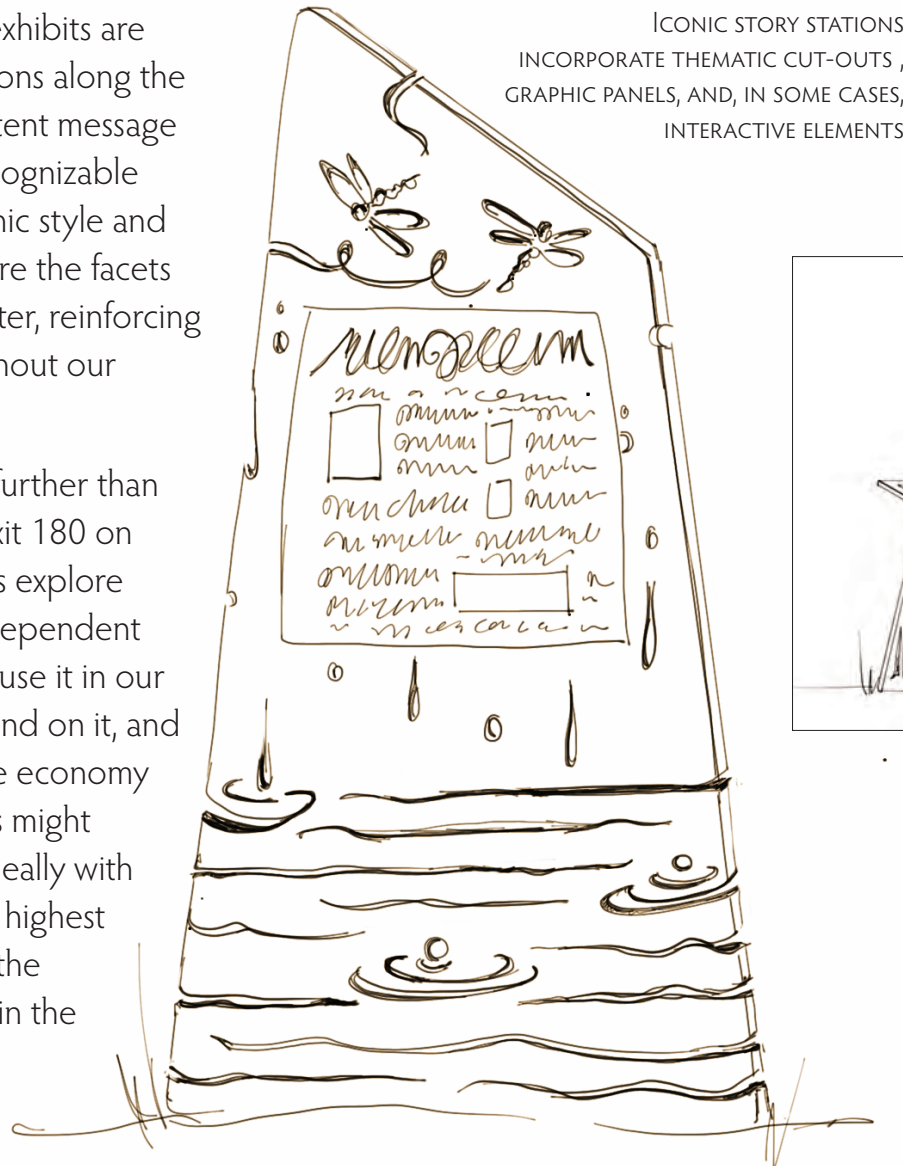 exhibits are
ons along the
tent message
ognizable
nic style and
re the facets
ter, reinforcing
hout our
further than
xit 180 on
s explore
ependent
use it in our
nd on it, and
e economy
s might
eally with
highest
the
in the
Iconic story stations
incorporate thematic cut-outs ,
graphic panels, and, in some cases,
interactive elements